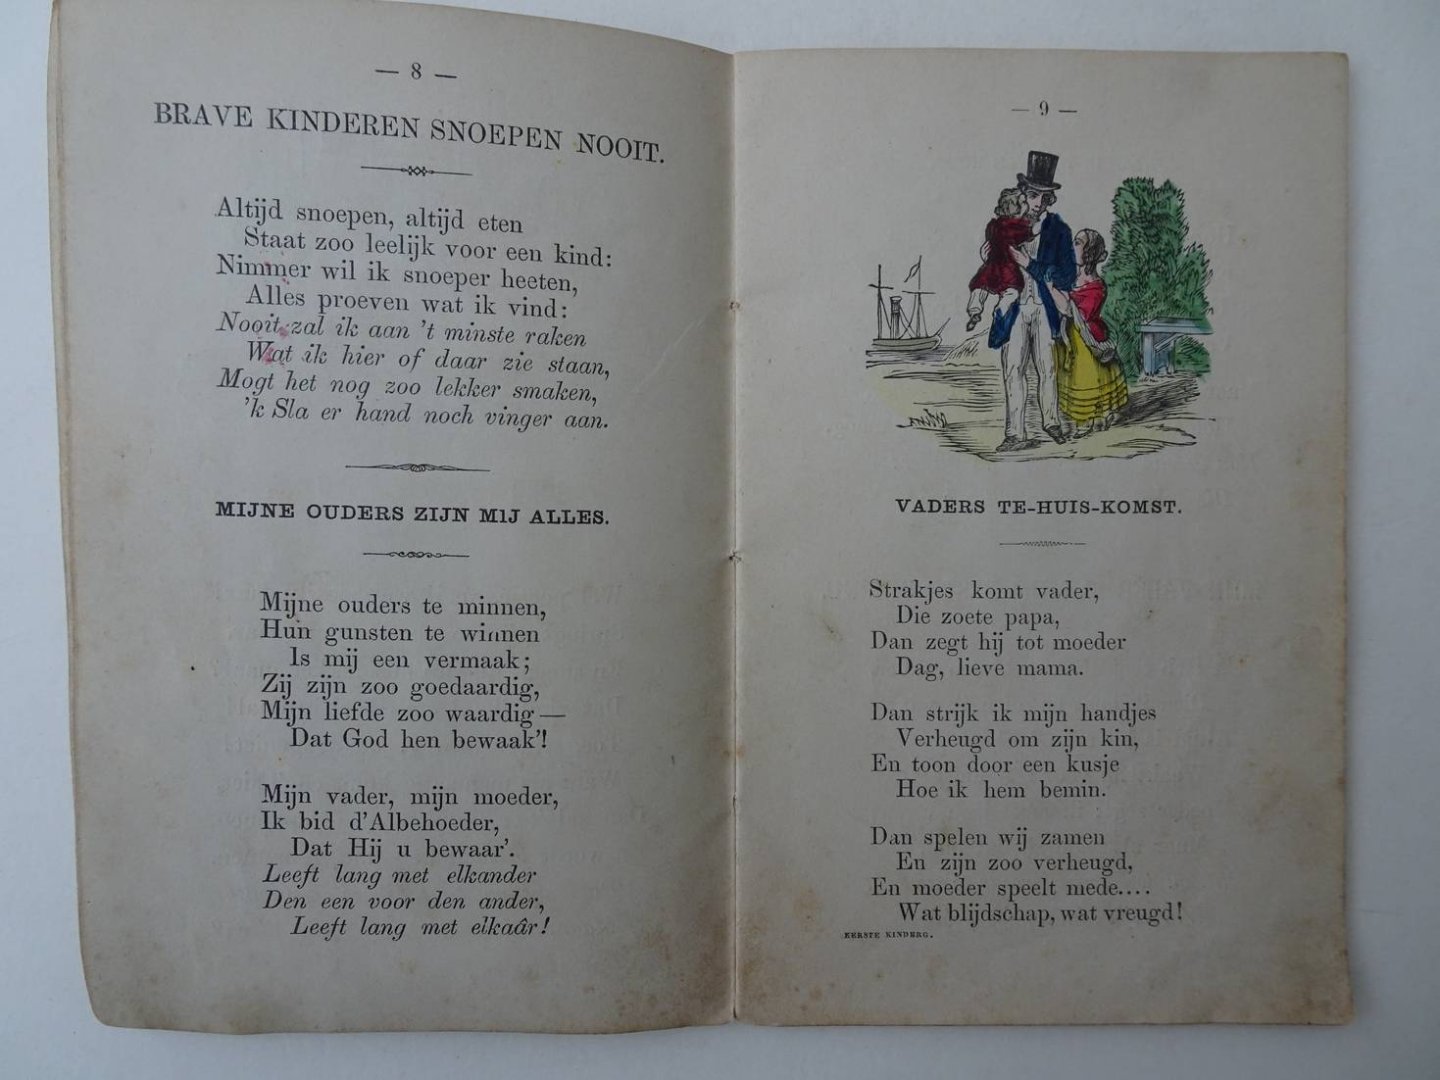 — 8 —
BRAVE KINDEREN SNOEPEN NOOIT.
Altijd snoepen, altijd eten
Staat zoo leelijk voor een kind:
Nimmer wil ik snoeper heeten,
Alles proeven wat ik vind:
Nooit zal ik aan 't minste raken
Wat ik hier of daar zie staan,
Mogt het nog zoo lekker smaken,
'k Sla er hand noch vinger aan.
MIJNE OUDERS ZIJN M1J ALLES.
Mijne ouders te minnen,
Hun gunsten te winnen
Is mij een vermaak;
Zij zijn zoo goedaardig,
Mijn liefde zoo waardig —
Dat God hen bewaak'!
Mijn vader, mijn moeder,
Ik bid d'Albehoeder,
Dat Hij u bewaar'.
Leeft lang met elkander
Den een voor den ander,
Leeft lang met elkaâr!
— 9 —
VADERS TE-HUIS-KOMST.
Strakjes komt vader,
Die zoete papa,
Dan zegt hij tot moeder
Dag, lieve mama.
Dan strijk ik mijn handjes
Verheugd om zijn kin,
En toon door een kusje
Hoe ik hem bemin.
Dan spelen wij zamen
En zijn zoo verheugd,
En moeder speelt mede....
Wat blijdschap, wat vreugd!
EERSTE KINDERG.